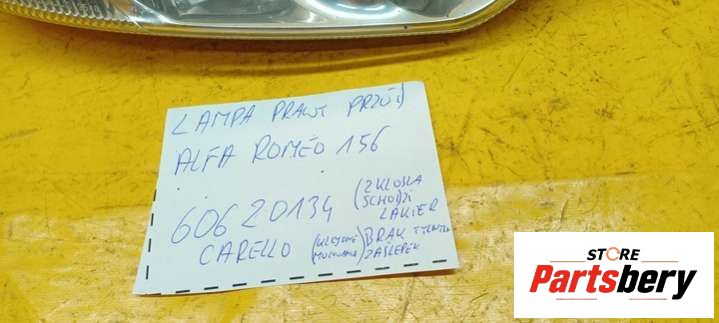 LAMPA PRAWY PRZÓD
ALFA ROMEO 156
60620134
(Z KLOSZA
SCHODZI
LAKIER
CARELLO
(KLEJONE
MOCOWANIE)
BRAK TYLNYCH
ZAŚLEPEK
STORE
Partsbery